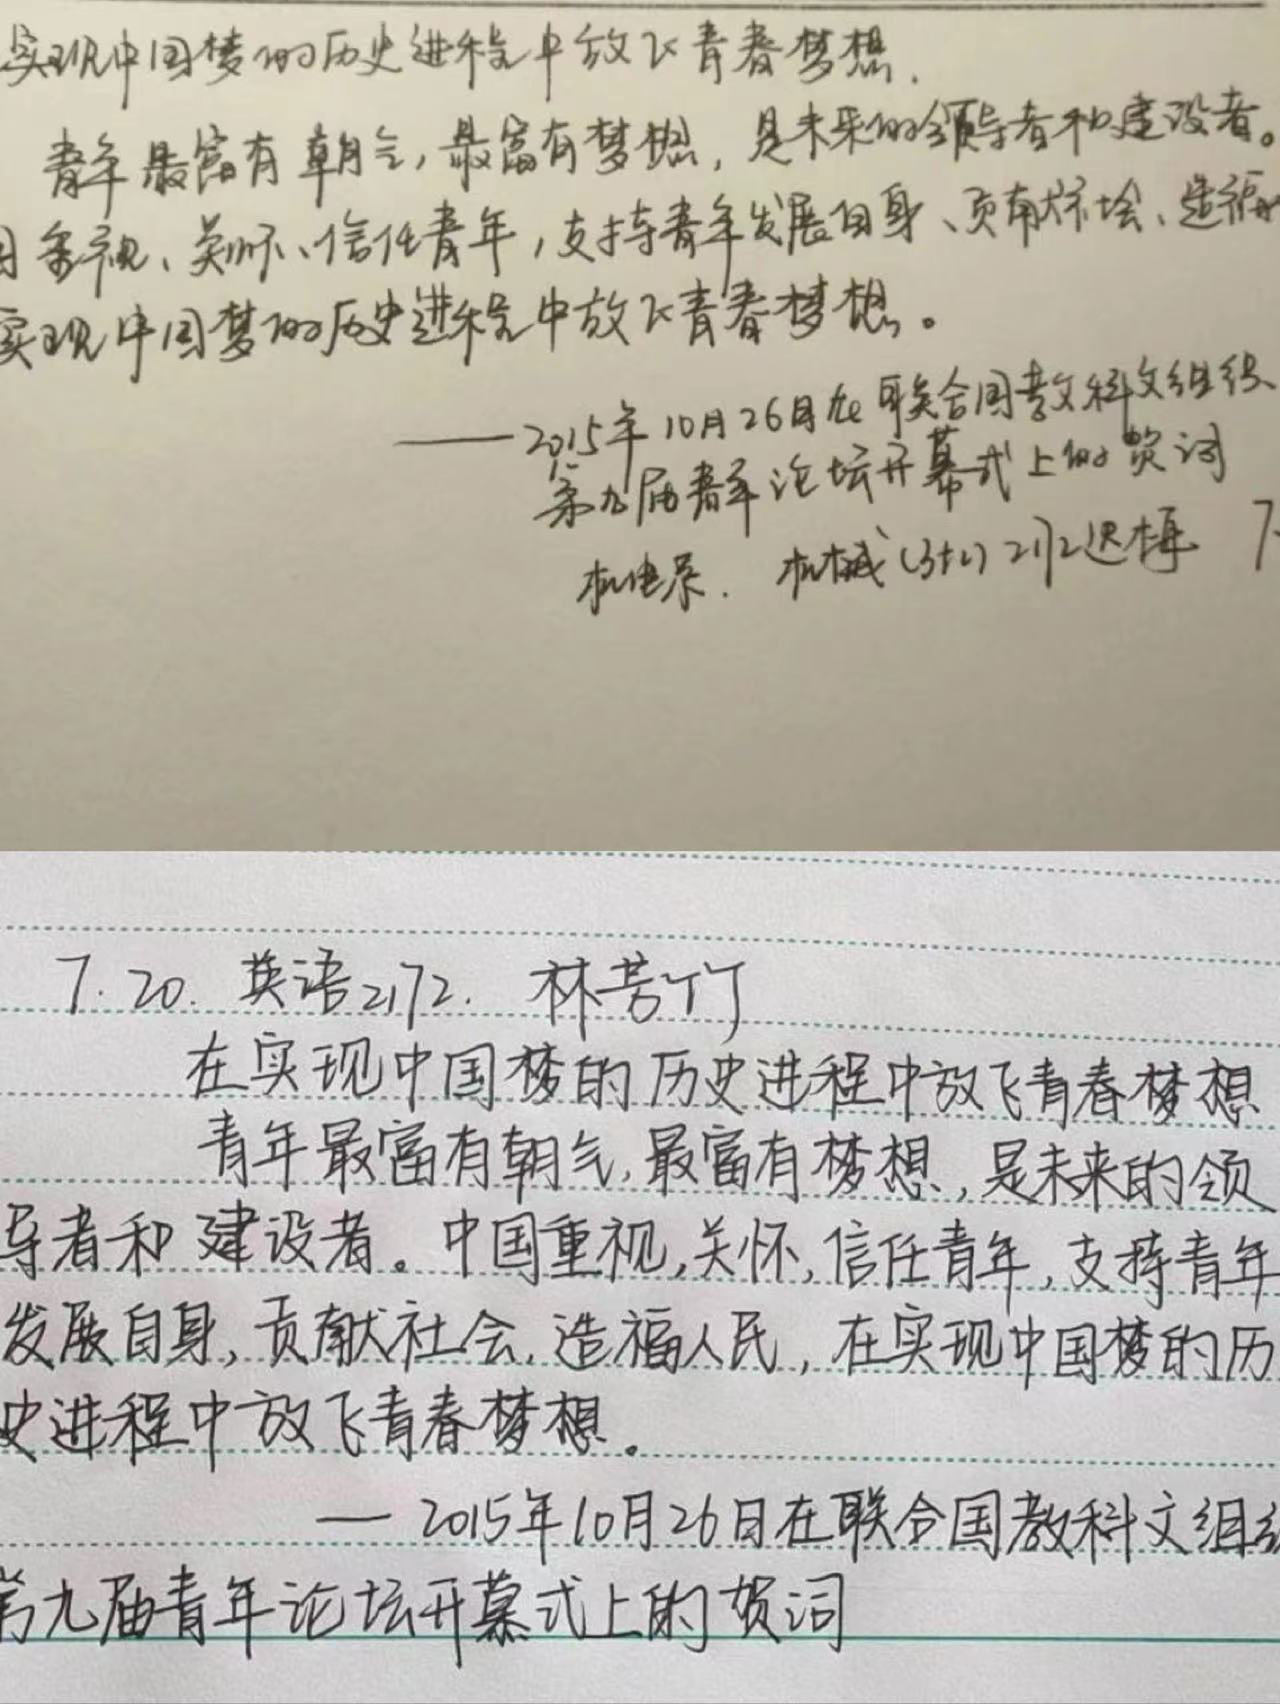 实现中国梦的历史进程中放飞青春梦想.
青年最富有朝气,最富有梦想,是未来的领导者和建设者。
国重视、关怀、信任青年,支持青年发展自身、贡献社会、造福
实现中国梦的历史进程中放飞青春梦想。
——2015年10月26日在联合国教科文组织
第九届青年论坛开幕式上的贺词
机电系. 机械(3+2)2172迟梅 7.
7.20. 英语2172. 林芳竹
在实现中国梦的历史进程中放飞青春梦想
青年最富有朝气,最富有梦想,是未来的领
导者和建设者。中国重视,关怀,信任青年,支持青年
发展自身,贡献社会,造福人民,在实现中国梦的历
史进程中放飞青春梦想.
—2015年10月26日在联合国教科文组织
第九届青年论坛开幕式上的贺词